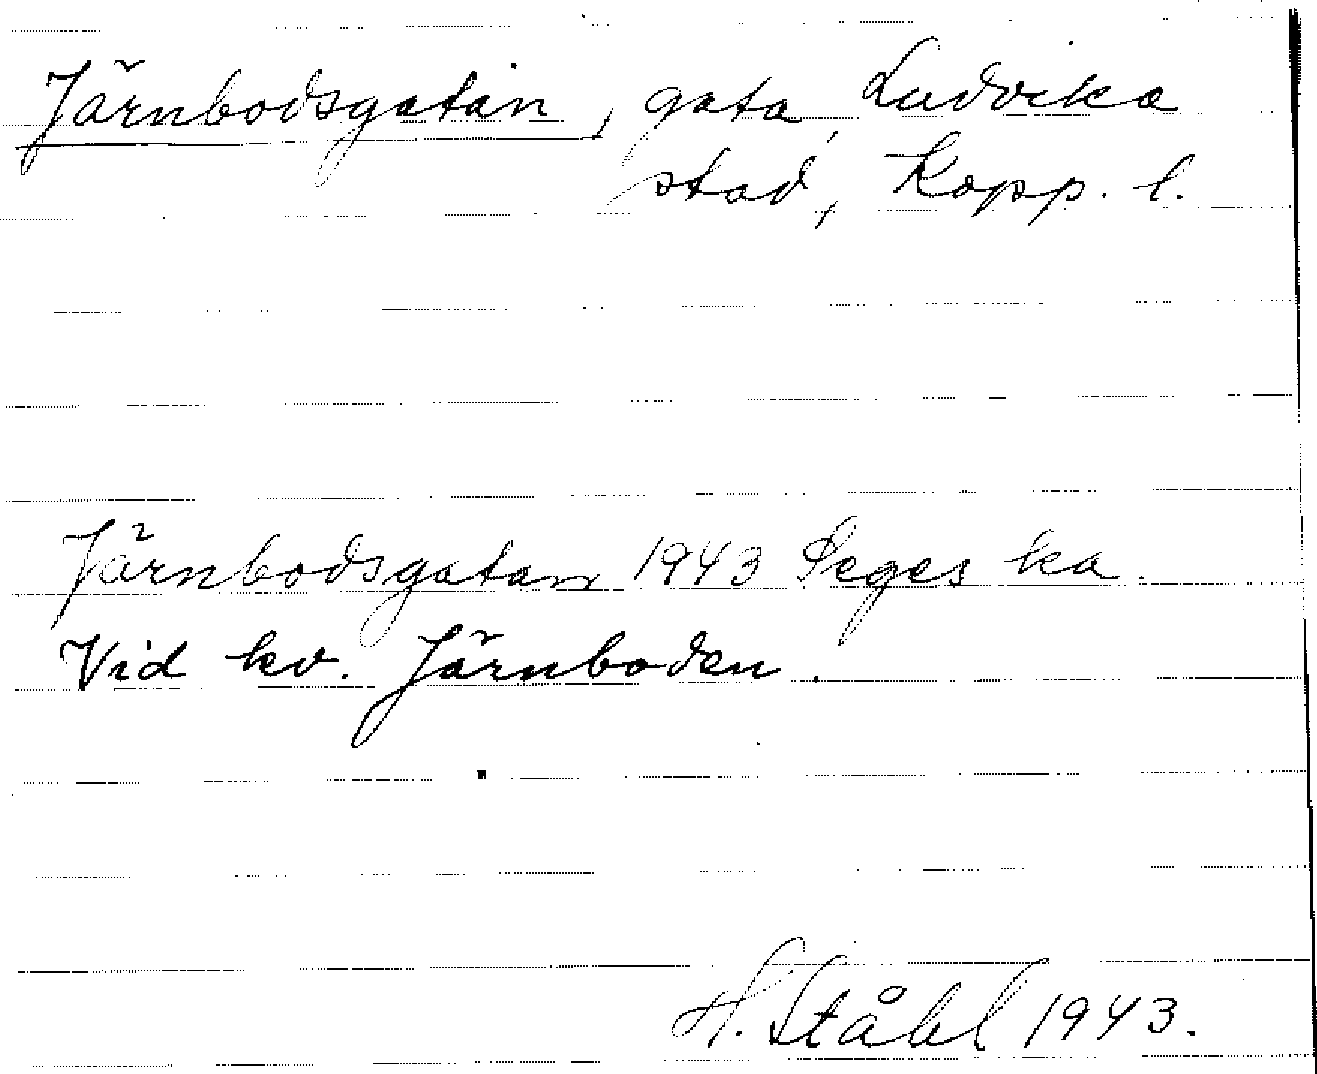 Järnbodsgatan, gata, Ludvika
stad, Kopp. l.
Järnbodsgatan 1943 Seges ka.
Vid kv. Järnboden.
H. Ståhl 1943.